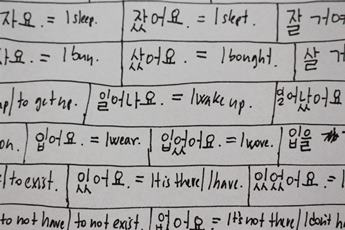 자요. = I sleep. 잤어요. = I slept. 잘 거예
사요. = I buy. 샀어요. = I bought. 살 거
up/ to get up. 일어나요. = I wake up. 일어났어요
on. 입어요. = I wear. 입었어요. = I wore. 입을
/ to exist. 있어요. = It is there/ I have. 있었어요. = I
to not have/ to not exist. 없어요. = It's not there/ I don't ha